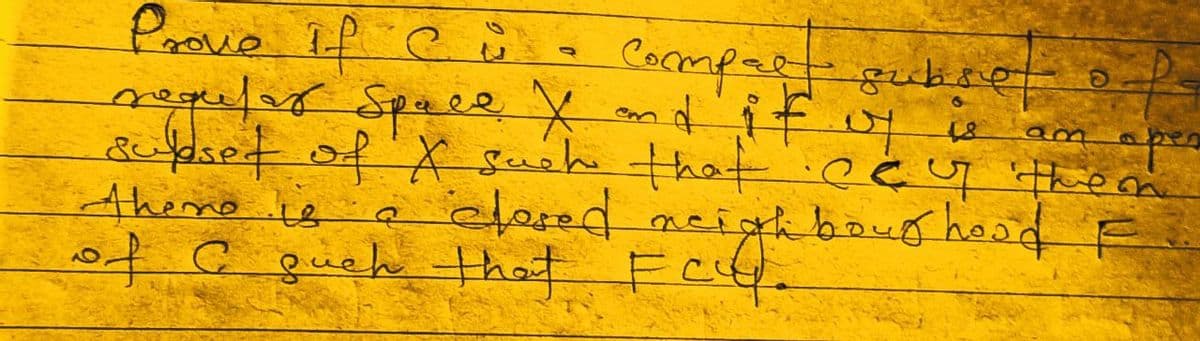 Prove if C is a Compact subset of a
regular Space X and if U is an open
subset of X such that C ⊂ U then
there is a closed neighbourhood F
of C such that F ⊂ U.